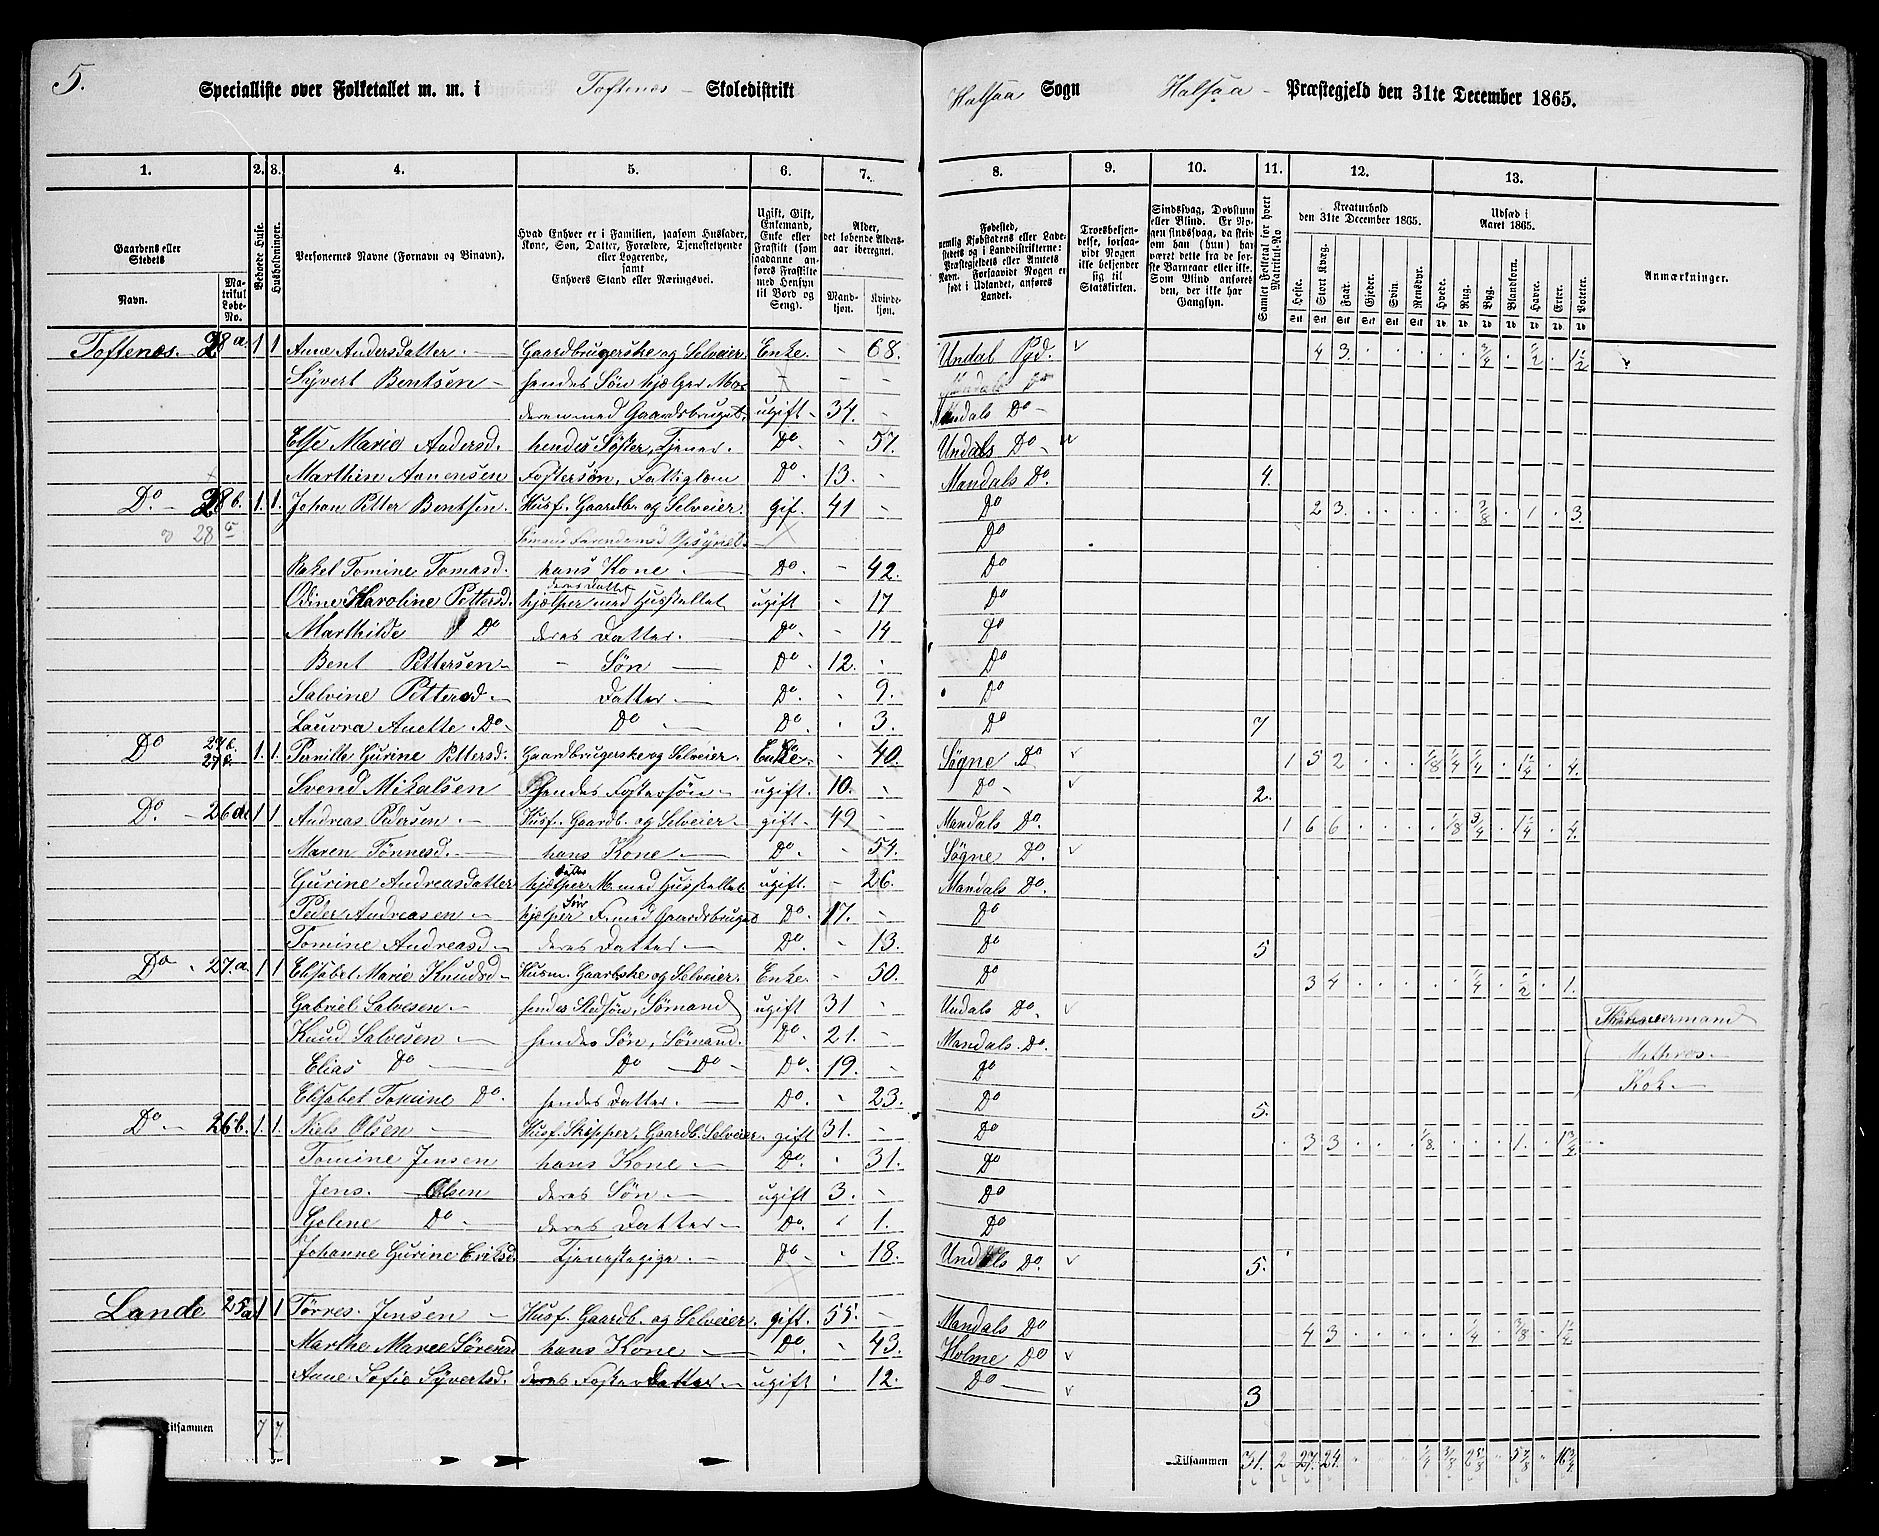 5.
Specialliste over Folketallet m. m. i Toftenes Skoledistrikt Halsaa Sogn Halsaa Præstegjeld den 31te December 1865.
1. 2. 3. 4. 5. 6. 7. 8. 9. 10. 11. 12. 13.
Gaardens eller Stedets
Navn. Matrikul Løbe-No.
Beboede Huse.
Husholdninger.
Personernes Navne (Fornavn og Binavn).
Hvad Enhver er i Familien, saasom Husfader, Kone, Søn, Datter, Forældre, Tjenestetyende eller Logerende, samt Enhvers Stand eller Næringsvei.
Ugift, Gift, Enkemand, Enke eller Fraskilt (som saadanne anføres Fraskilte med Hensyn til Bord og Seng).
Alder, det løbende Aldersaar iberegnet.
Mandkjøn. Kvindekjøn.
Fødested, nemlig Kjøbstadens eller Ladestedets og i Landdistrikterne: Præstegjeldets eller Amtets Navn. Forsaavidt Nogen er født i Udlandet, anføres Landet.
Troesbekjendelse, forsaavidt Nogen ikke bekjender sig til Statskirken.
Sindssvag, Døvstum eller Blind. Er Nogen sindssvag, da skriv om han (hun) har været dette fra de første Barneaar eller ikke. Som Blind anføres den, der ikke har Gangsyn.
Samlet Folketal for hvert Matrikul-No
Kreaturhold den 31te December 1865.
Heste. Stort Kvæg. Faar. Gjeder. Svin. Rensdyr.
Udsæd i Aaret 1865.
Hvede. Rug. Byg. Blandkorn. Havre. Erter. Poteter.
Anmærkninger.
Toftenæs. 28a. 1 1 Anne Andersdatter. Gaardbrugerske og Selveier Enke 68. Undal Pgd. 4 3 3/4 1/2 1 1/2
Syvert Bentsen hendes Søn hjælper Mo=
deren med Gaardsbruget. ugift 34. Mandals Do
Else Marie Andersd. hendes Søster, Tjener. Do 57. Undals Do
Marthin Annensen Fostersøn, Fattiglem Do. 13. Mandals Do. 4.
Do. 28b. 1. 1. Johan Petter Bentsen. Husf. Gaardb. og Selveier. gif. 41 Do 2 3. 3/8 1 3.
28c Do
Raket Tomine Tomasd. hans Kone Do. 42. Do
Odine Karoline Pettersd. deres Datter hjælper med Husstellet ugift 17 Do
Marthilde Do deres Datter. Do. 14 Do
Bent Pettersen Søn Do 12. Do
Salvine Pettersd. Datter. Do. 9. Do
Lauvra Anette Do Do Do 3. Do 7
Do 27b. 27c. 1. 1. Pernille Gurine Pettersd. Gaardbrugerske og Selveier. Enke. 40. Søgne Do 1 5 2 1/8 1/4 1/4 1/4 4.
Svend Mikalsen Hendes Fostersøn ugift. 10. Do 2.
Do. 26a 1 1 Andreas Pedersen. Husf. Gaardb. og Selveier. gift 49 Mandals Do. 1 6 6 1/8 3/4 1/4 4.
Maren Tønnesd. hans Kone. Do. 54. Søgne Do.
Gurine Andreasdatter Datter hjælper M. med Husstellet ugift. 26. Mandals Do.
Peder Andreasen Søn hjælper F. med Gaardsbruget Do. 17. Do
Tomine Andreasd. deres Datter. Do. 13. Do 5
Do 27.a. 1 1 Elisabet Marie Knudsd Husm. Gaarbske og Selveier. Enke. 50. Do 3 4 1/4 1/2 1.
Gabriel Salvesen. hendes Stedsøn, Sømand ugift 31 Undals Do. Tømmermand
Knud Salvesen hendes Søn, Sømand. Do 21. Mandals. Do. Mathros.
Elias Do Do Do Do. 19. Do Kok
Elisabet Tomine Do. hendes Datter. Do. 23. Do 5.
Do. 26b. 1. 1. Niels Olsen Husf. Skipper, Gaardb. Selveier. gift 31. Do 3 3 1/8. 1. 1 3/4
Tomine Jensen hans Kone Do. 31. Do
Jens. Olsen deres Søn ugift 3. Do
Goline Do deres Datter Do. 1. Do
Johanne Gurine Eriksd. Tjenestepige. Do 18. Undals Do. 5.
Lande 25a 1 1 Tørres. Jensen Husf. Gaardb. og Selveier. gift 55. Mandals Do 4 3 1/4 3/8 1 1/2
Marthe Maree Sørensd hans Kone Do. 43. Holme Do
Anne Sofie Syvertsd. deres Foster Datter ugift 12. Do 3
Tilsammen 7 7. Tilsammen 31. 2 27. 24 1/4 3/8 2 5/8 5 7/8 16 3/4